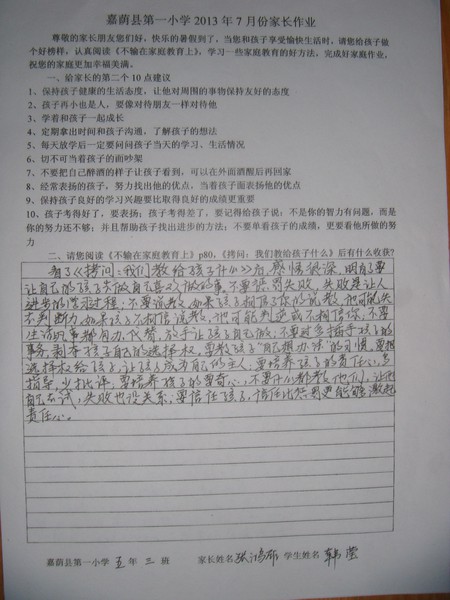 嘉荫县第一小学2013年7月份家长作业
尊敬的家长朋友您们好，快乐的暑假到了，当您和孩子享受愉快生活时，请您给孩子做
个好榜样，认真阅读《不输在家庭教育上》，学习一些家庭教育的好方法，完成好家庭作业，
祝您的家庭更加幸福美满。
一、给家长的第二个10点建议
1、保持孩子健康的生活态度，让他对周围的事物保持友好的态度
2、孩子再小也是人，要像对待朋友一样对待他
3、学着和孩子一起成长
4、定期拿出时间和孩子沟通，了解孩子的想法
5、每天放学后一定要问问孩子当天的学习、生活情况
6、切不可当着孩子的面吵架
7、不要把自己醉酒的样子让孩子看到，可以在外面酒醒后再回家
8、经常表扬的孩子，努力找出他的优点，当着孩子面表扬他的优点
9、保持孩子良好的学习兴趣要比取得良好的成绩更重要
10、孩子考得好了，要表扬；孩子考得差了，要记得给孩子说：不是你的智力有问题，而是
你的努力还不够；并且帮助孩子找出进步的方法；不要单看孩子的成绩，更要看他所做的努
力
二、请您阅读《不输在家庭教育上》p80，《拷问：我们教给孩子什么》后有什么收获？
看了《拷问：我们教给孩子什么》后，感悟很深，明白了要
让自己的孩子去做自己喜欢做的事，不要惩罚失败，失败是让人
进步的学习过程；不要说教，如果孩子相信了你的说教，他可能失
去判断力，如果孩子不相信说教，他可能判逆或不相信你，不要
生活琐事都包办、代替，放手让孩子自己做；不要过多插手孩子的
事务，剥夺孩子自己的选择权，要教孩子“自己想办法”的习惯，要把
选择权给孩子，让孩子成为自己的主人，要培养孩子的责任心，多
指导，少批评，要培养孩子的好奇心，不要什么都教他们，让他
自己去试，失败也没关系，要信任孩子，信任比惩罚更能够激起
责任心。
嘉荫县第一小学 五 年 三 班 家长姓名 张鸿 学生姓名 韩莹